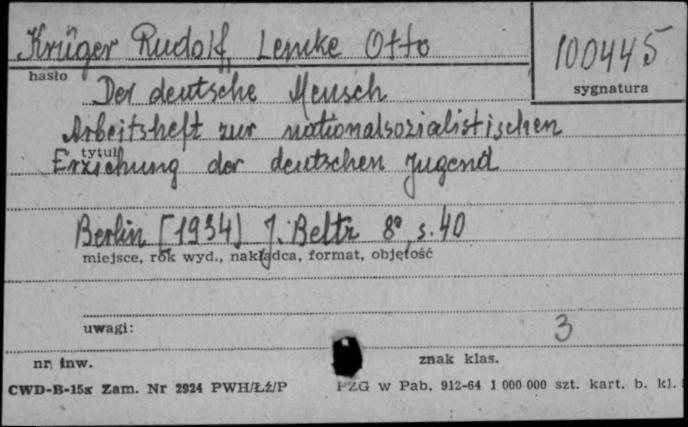 Krüger Rudolf, Lemke Otto
100445
hasło
sygnatura
Der deutsche Mensch
Arbeitsheft zur nationalsozialistischen
tytuł
Erziehung der deutschen Jugend
Berlin [1934] J. Beltz 8°, s. 40
miejsce, rok wyd., nakładca, format, objętość
uwagi:
3
nr. inw.
znak klas.
CWD-B-15x Zam. Nr 2924 PWH/Łź/P
PZG w Pab. 912-64 1 000 000 szt. kart. b. kl.